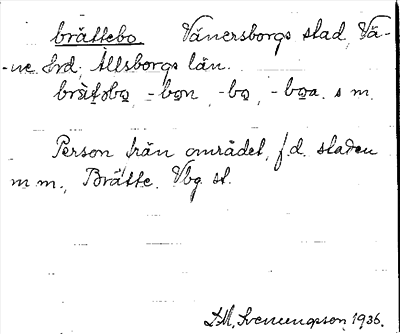 brättebo. Vänersborgs stad, Vä-
-ne hrd, Älfsborgs län.
-bon, -bo, -boa. s m.
Person från området, f.d. staden
m m., Brätte. Vbg st.
1936.